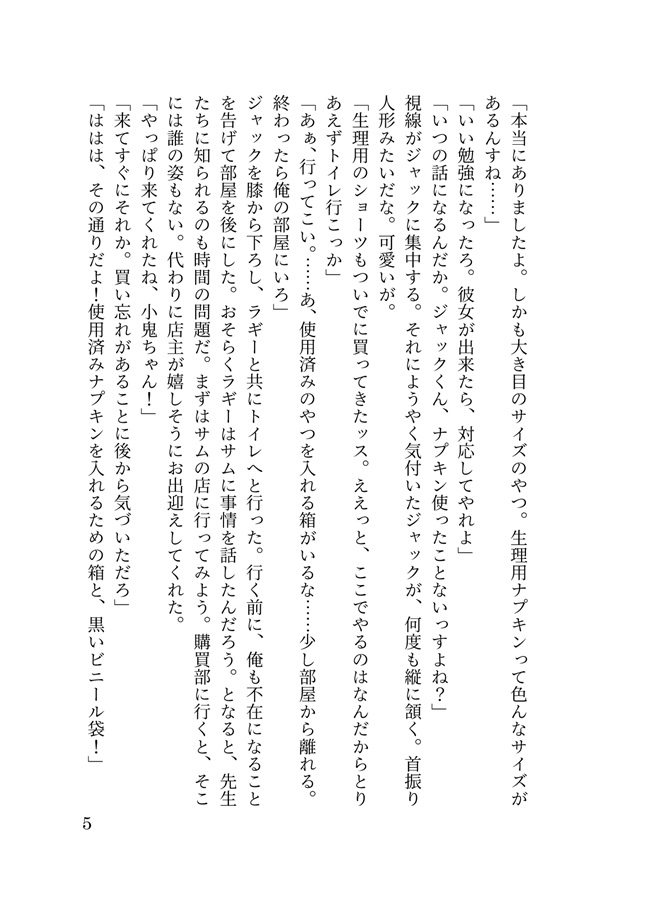 「本当にありましたよ。しかも大き目のサイズのやつ。生理用ナプキンって色んなサイズが
あるんすね……」
「いい勉強になったろ。彼女が出来たら、対応してやれよ」
「いつの話になるんだか。ジャックくん、ナプキン使ったことないっすよね？」
視線がジャックに集中する。それにようやく気付いたジャックが、何度も縦に頷く。首振り
人形みたいだな。可愛いが。
「生理用のショーツもついでに買ってきたッス。ええっと、ここでやるのはなんだからとり
あえずトイレ行こっか」
「あぁ、行ってこい。……あ、使用済みのやつを入れる箱がいるな……少し部屋から離れる。
終わったら俺の部屋にいろ」
ジャックを膝から下ろし、ラギーと共にトイレへと行った。行く前に、俺も不在になること
を告げて部屋を後にした。おそらくラギーはサムに事情を話したんだろう。となると、先生
たちに知られるのも時間の問題だ。まずはサムの店に行ってみよう。購買部に行くと、そこ
には誰の姿もない。代わりに店主が嬉しそうにお出迎えしてくれた。
「やっぱり来てくれたね、小鬼ちゃん！」
「来てすぐにそれか。買い忘れがあることに後から気づいただろ」
「ははは、その通りだよ！使用済みナプキンを入れるための箱と、黒いビニール袋！」
5